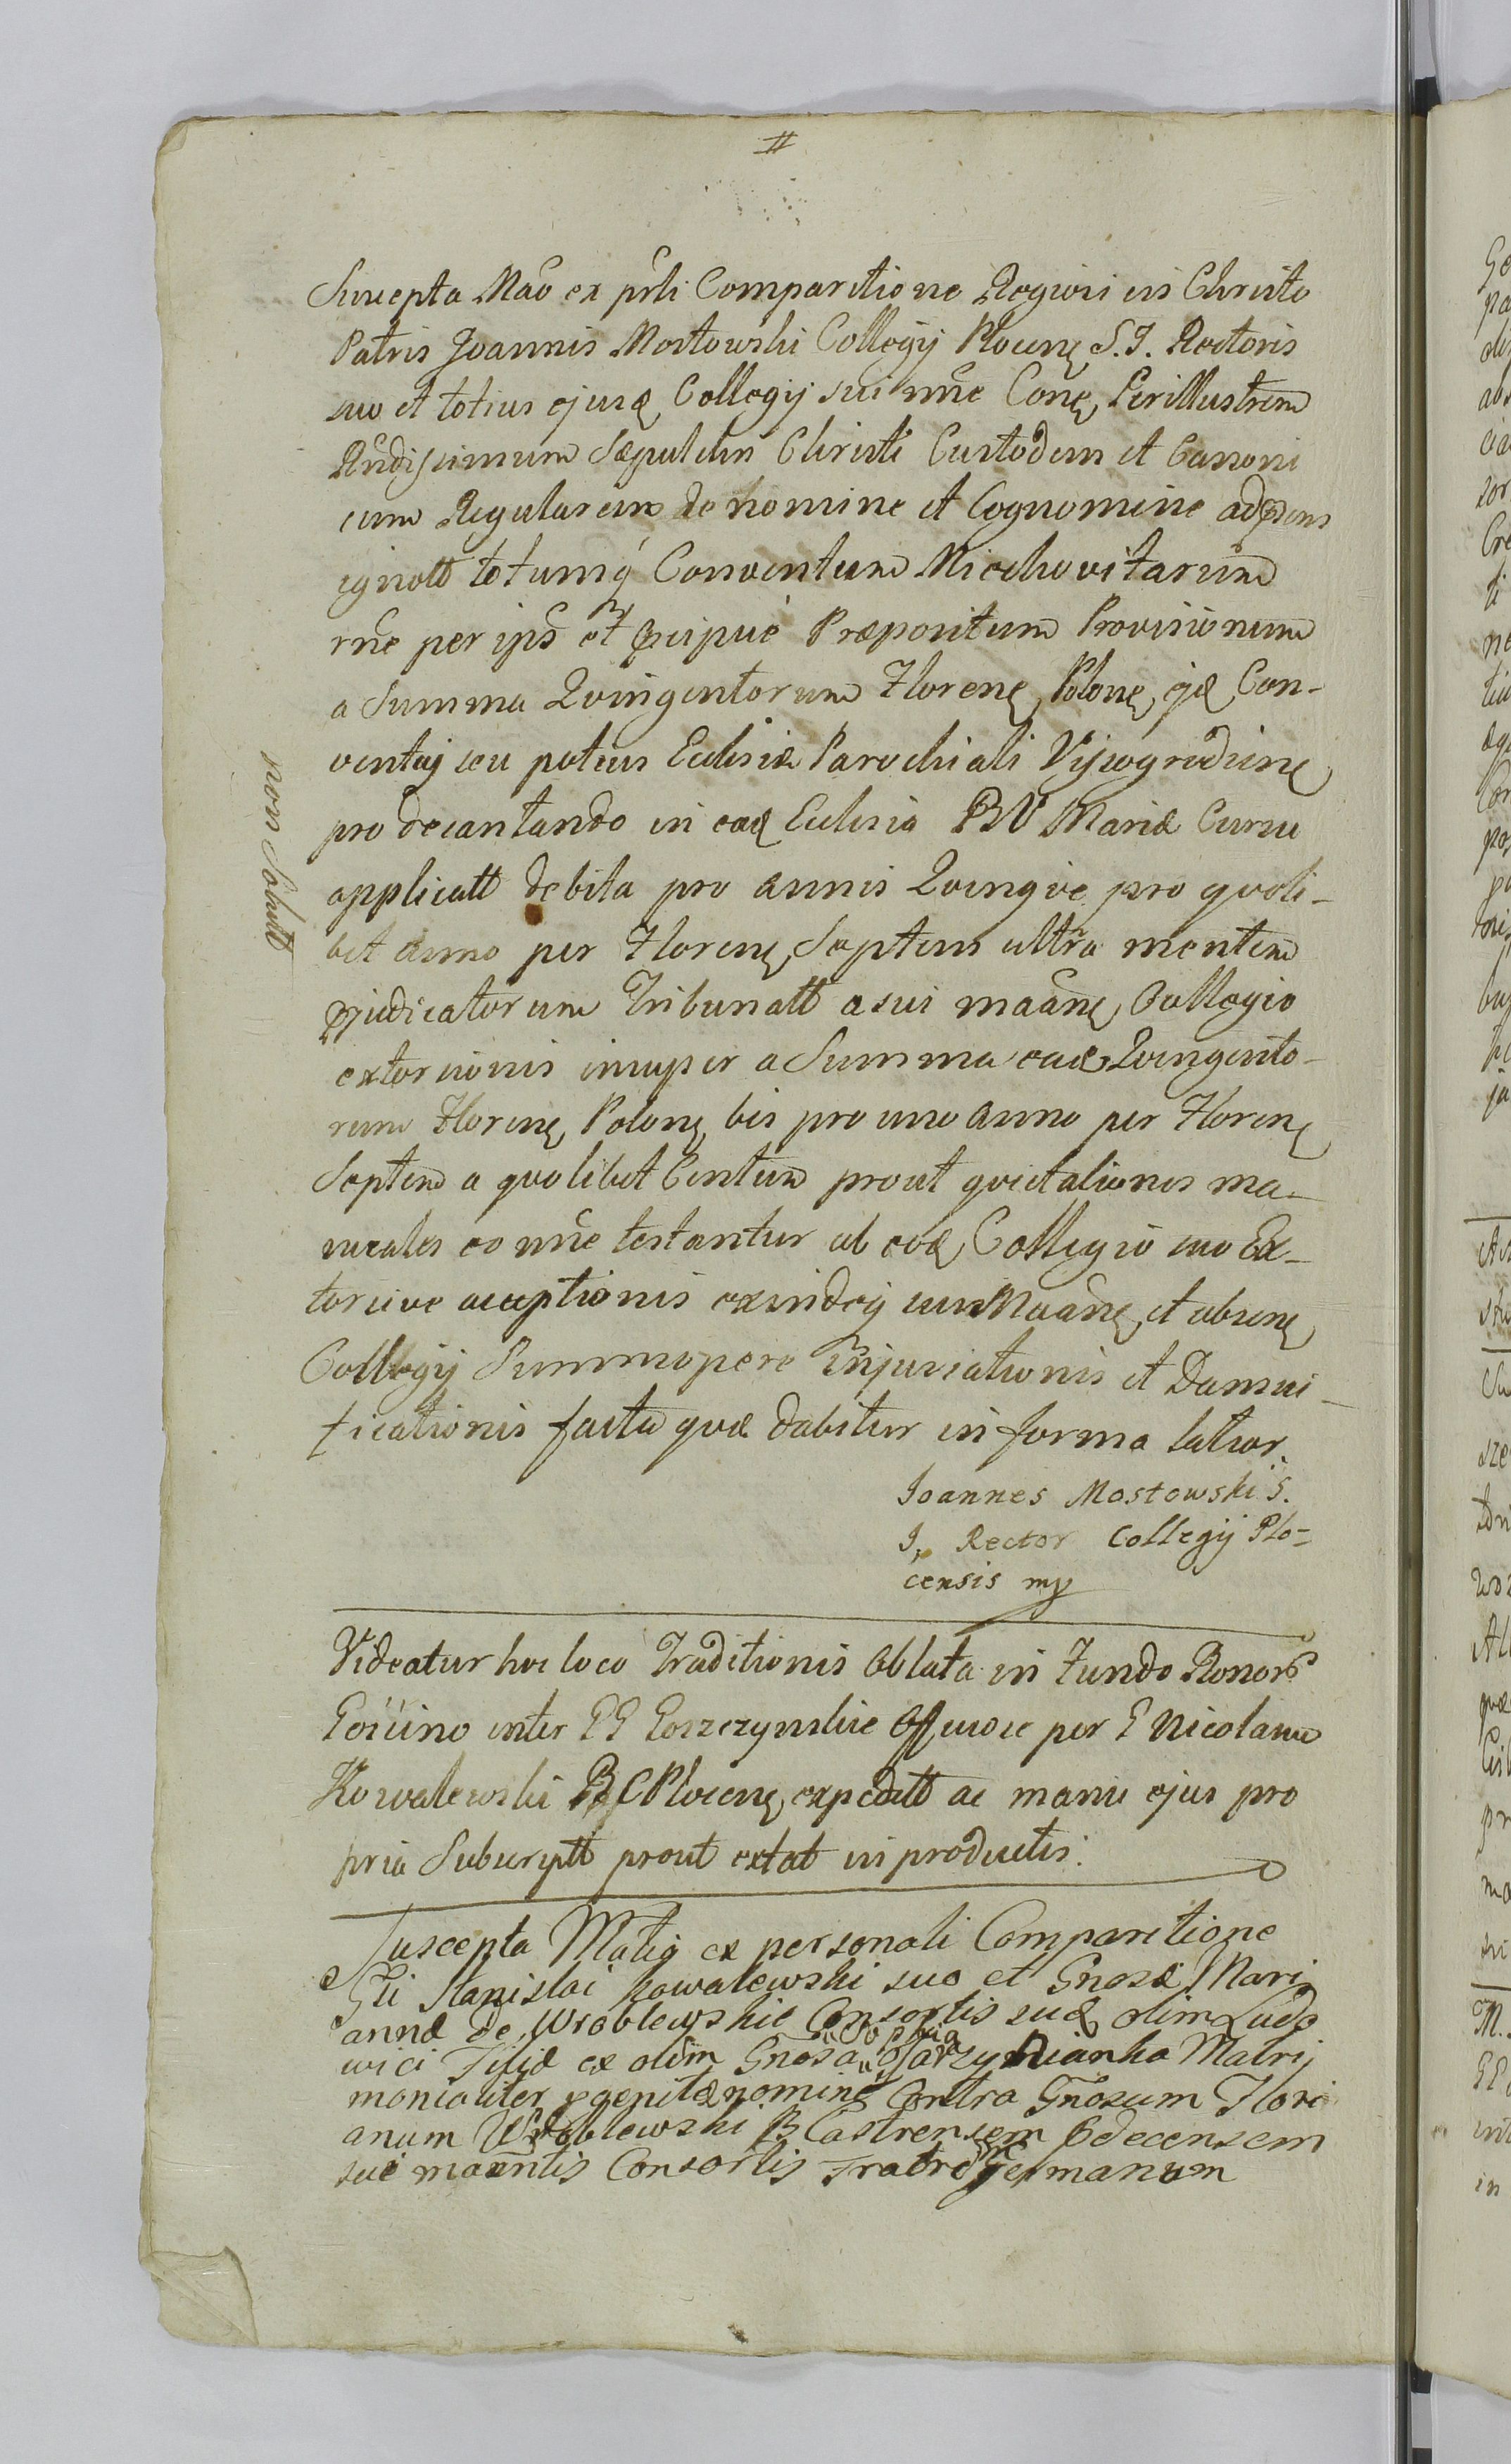 #
Suscepta Mão ex prli Comparitione Regiosi in Christo
Patris Joannis Mostowski Collegij Plocens S.J. Rectoris
suo et totius ejusd Collegij sui nne Cone Perillustrem
Rndissimum Sepulchri Christi Custodem et Canoni
cum Regularem de nomine et Cognomine ad
ignott totumq Conventum Miechovitarum
rne per ips et Præpositum Provisionum
a Summa Qvingentorum Floren Polon ejd Con-
ventuj seu potius Ecclesiæ Parochiali Vyszogrodien
pro decantando in ead Ecclesia BV Mariæ Cursu
applicatt debita pro annis Qvinqve pro qvoli-
bet anno per Floren Septem ultra mentem
Tribunatt a sui maane Collegio
extorsionis insuper a Summa ead Qvingento-
rum Floren Polon bis pro uno anno per Floren
Septem a qvolibet Centum prout qvietationes ma-
nuales eo nne testantur ab eod Collegio suo Ex-
torsive acceptionis exindeq sui Maane et
Collegij Summopere Injuriationis et Damni-
ficationis facta qvæ dabitur in forma latior.
non Solutt
Joannes Mostowski S.
J. Rector Collegij Plo=
censis mp
Videatur hoc loco Traditionis Oblata in Fundo Bonor
inter GG Goszczynskie per G Nicolaum
Kowalewski Plocen expeditt ac manu ejus pro
pria Subscriptt prout extat in productis.
Suscepta Matig ex personali Comparitione
Gti Stanislai Kowalewski suo et Gnosæ Mari
annæ de Wroblewskie Consortis suæ olim Ludo
wici Filiæ ex olim Gnosa Sophia Matrij
monialiter pgenitæ nomine Contra Gnosum Flori
anum Wroblewski B Castrensem
sue maentis Consortis Fratre Germanum